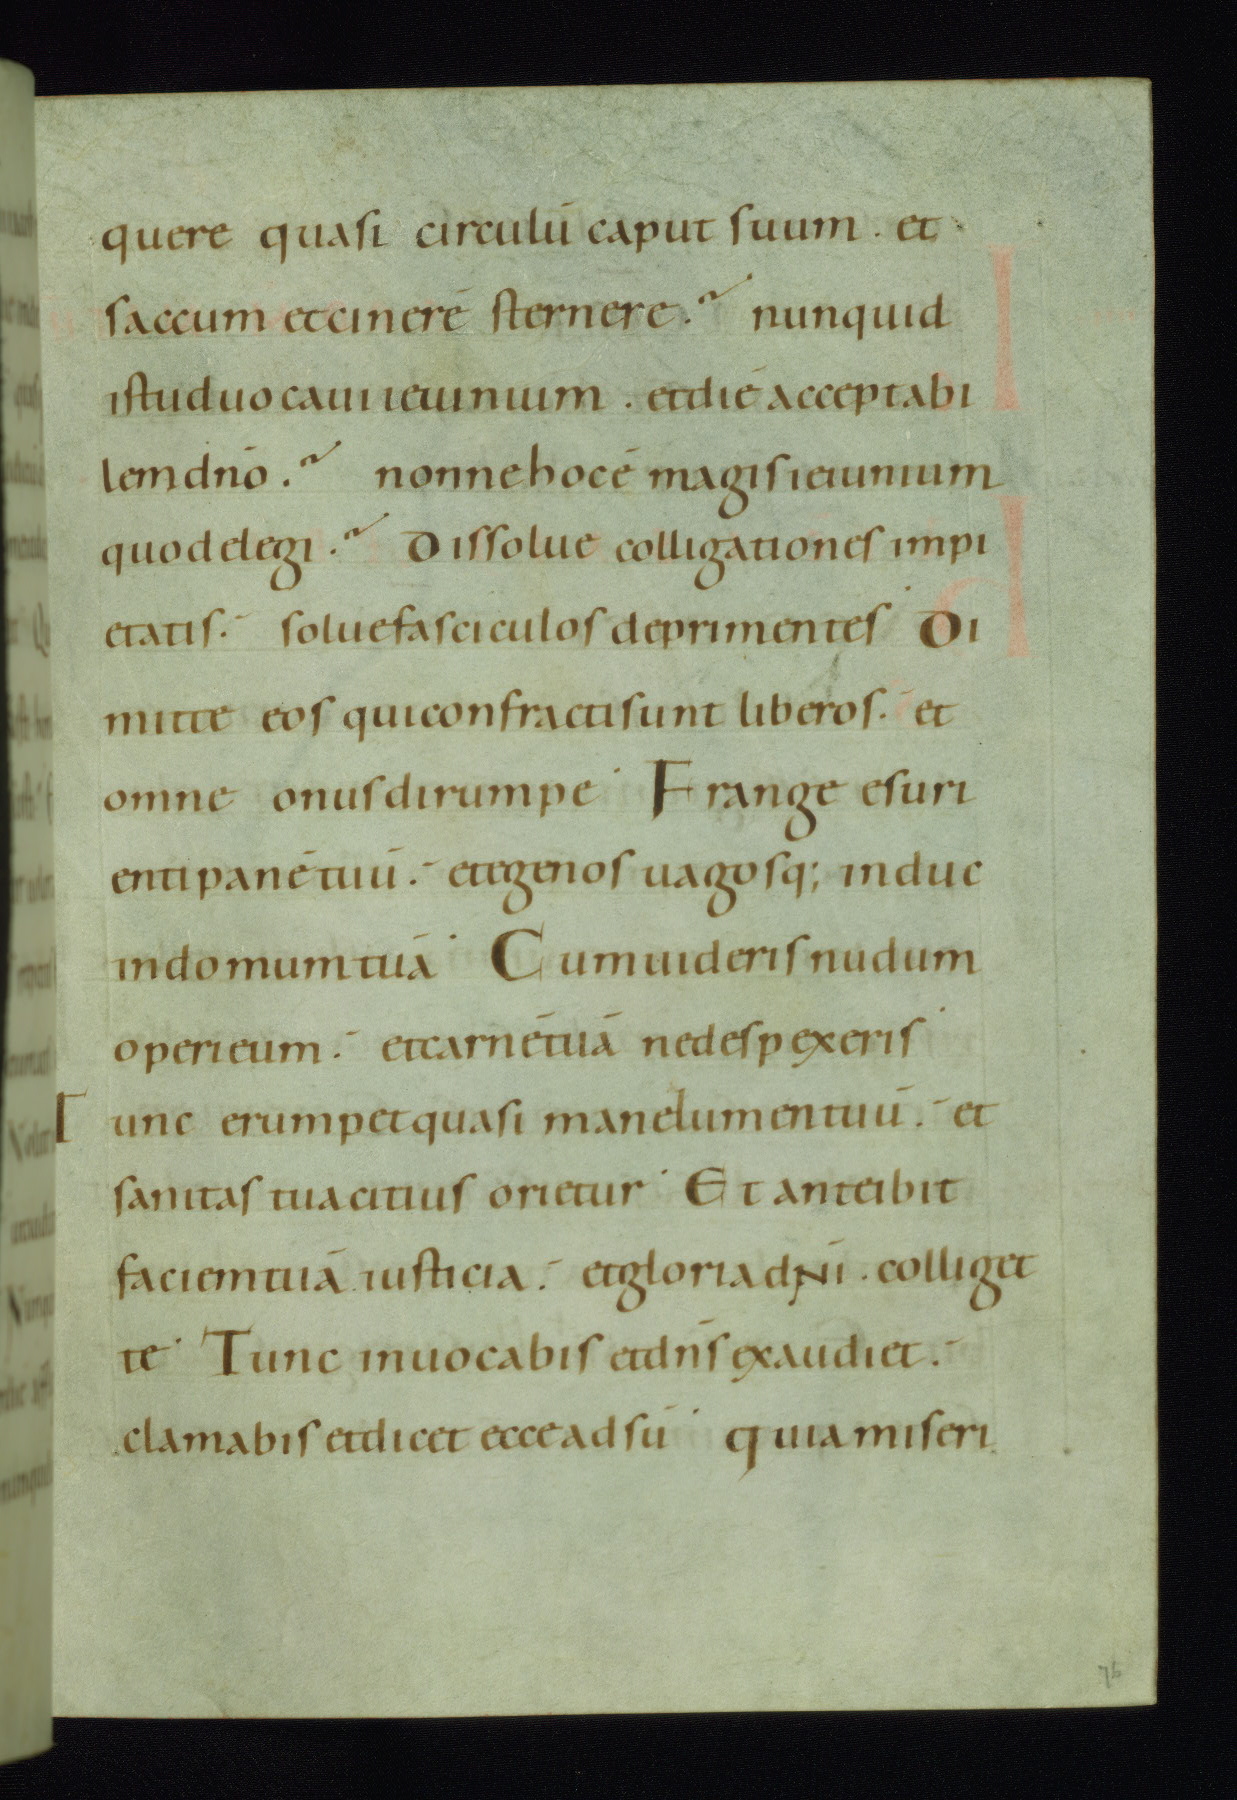 quere quasi circulū caput suum . et
saccum et cinerē sternere .~ nunquid
istud uocaui ieiunium . et diē acceptabi
lem dn̄o .~ nonne hoc ē magis ieiunium
quod elegi .~ Dissolue colligationes impi
etatis .- solue fasciculos deprimentes · Di
mitte eos qui confracti sunt liberos .- et
omne onus dirumpe · Frange esuri
enti panē tuū .- et egenos uagosq; induc
in domum tuā · Cum uideris nudum
operi eum .- et carnē tuā ne despexeris ·
Tunc erumpet quasi mane lumen tuū .- et
sanitas tua citius orietur · Et anteibit
faciem tuā iusticia .- et gloria dn̄i . colliget
te · Tunc inuocabis et dn̄s exaudiet .-
clamabis et dicet ecce ad sū · quia miseri
76